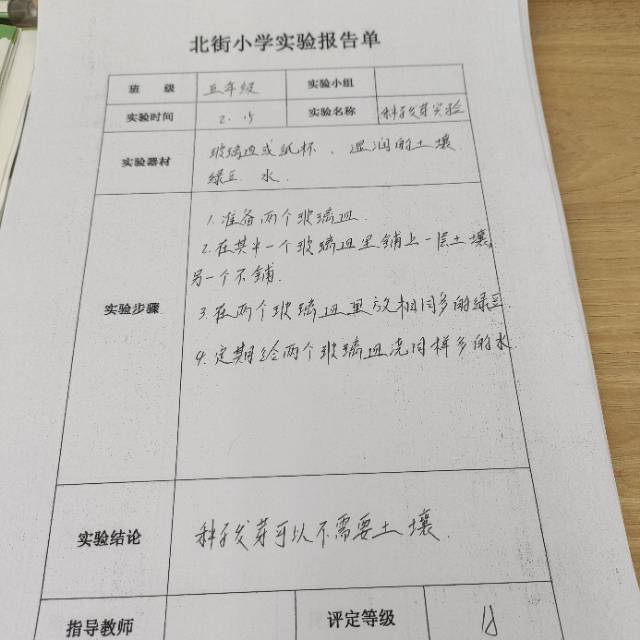 北街小学实验报告单
班 级 五年级 实验小组
实验时间 2.15 实验名称 种子发芽实验
实验器材 玻璃皿或纸杯、湿润的土壤
绿豆 水
实验步骤
1.准备两个玻璃皿
2.在其中一个玻璃皿里铺上一层土壤,
另一个不铺.
3.在两个玻璃皿里放相同多的绿豆
4.定期给两个玻璃皿浇同样多的水
实验结论 种子发芽可以不需要土壤.
指导教师 评定等级